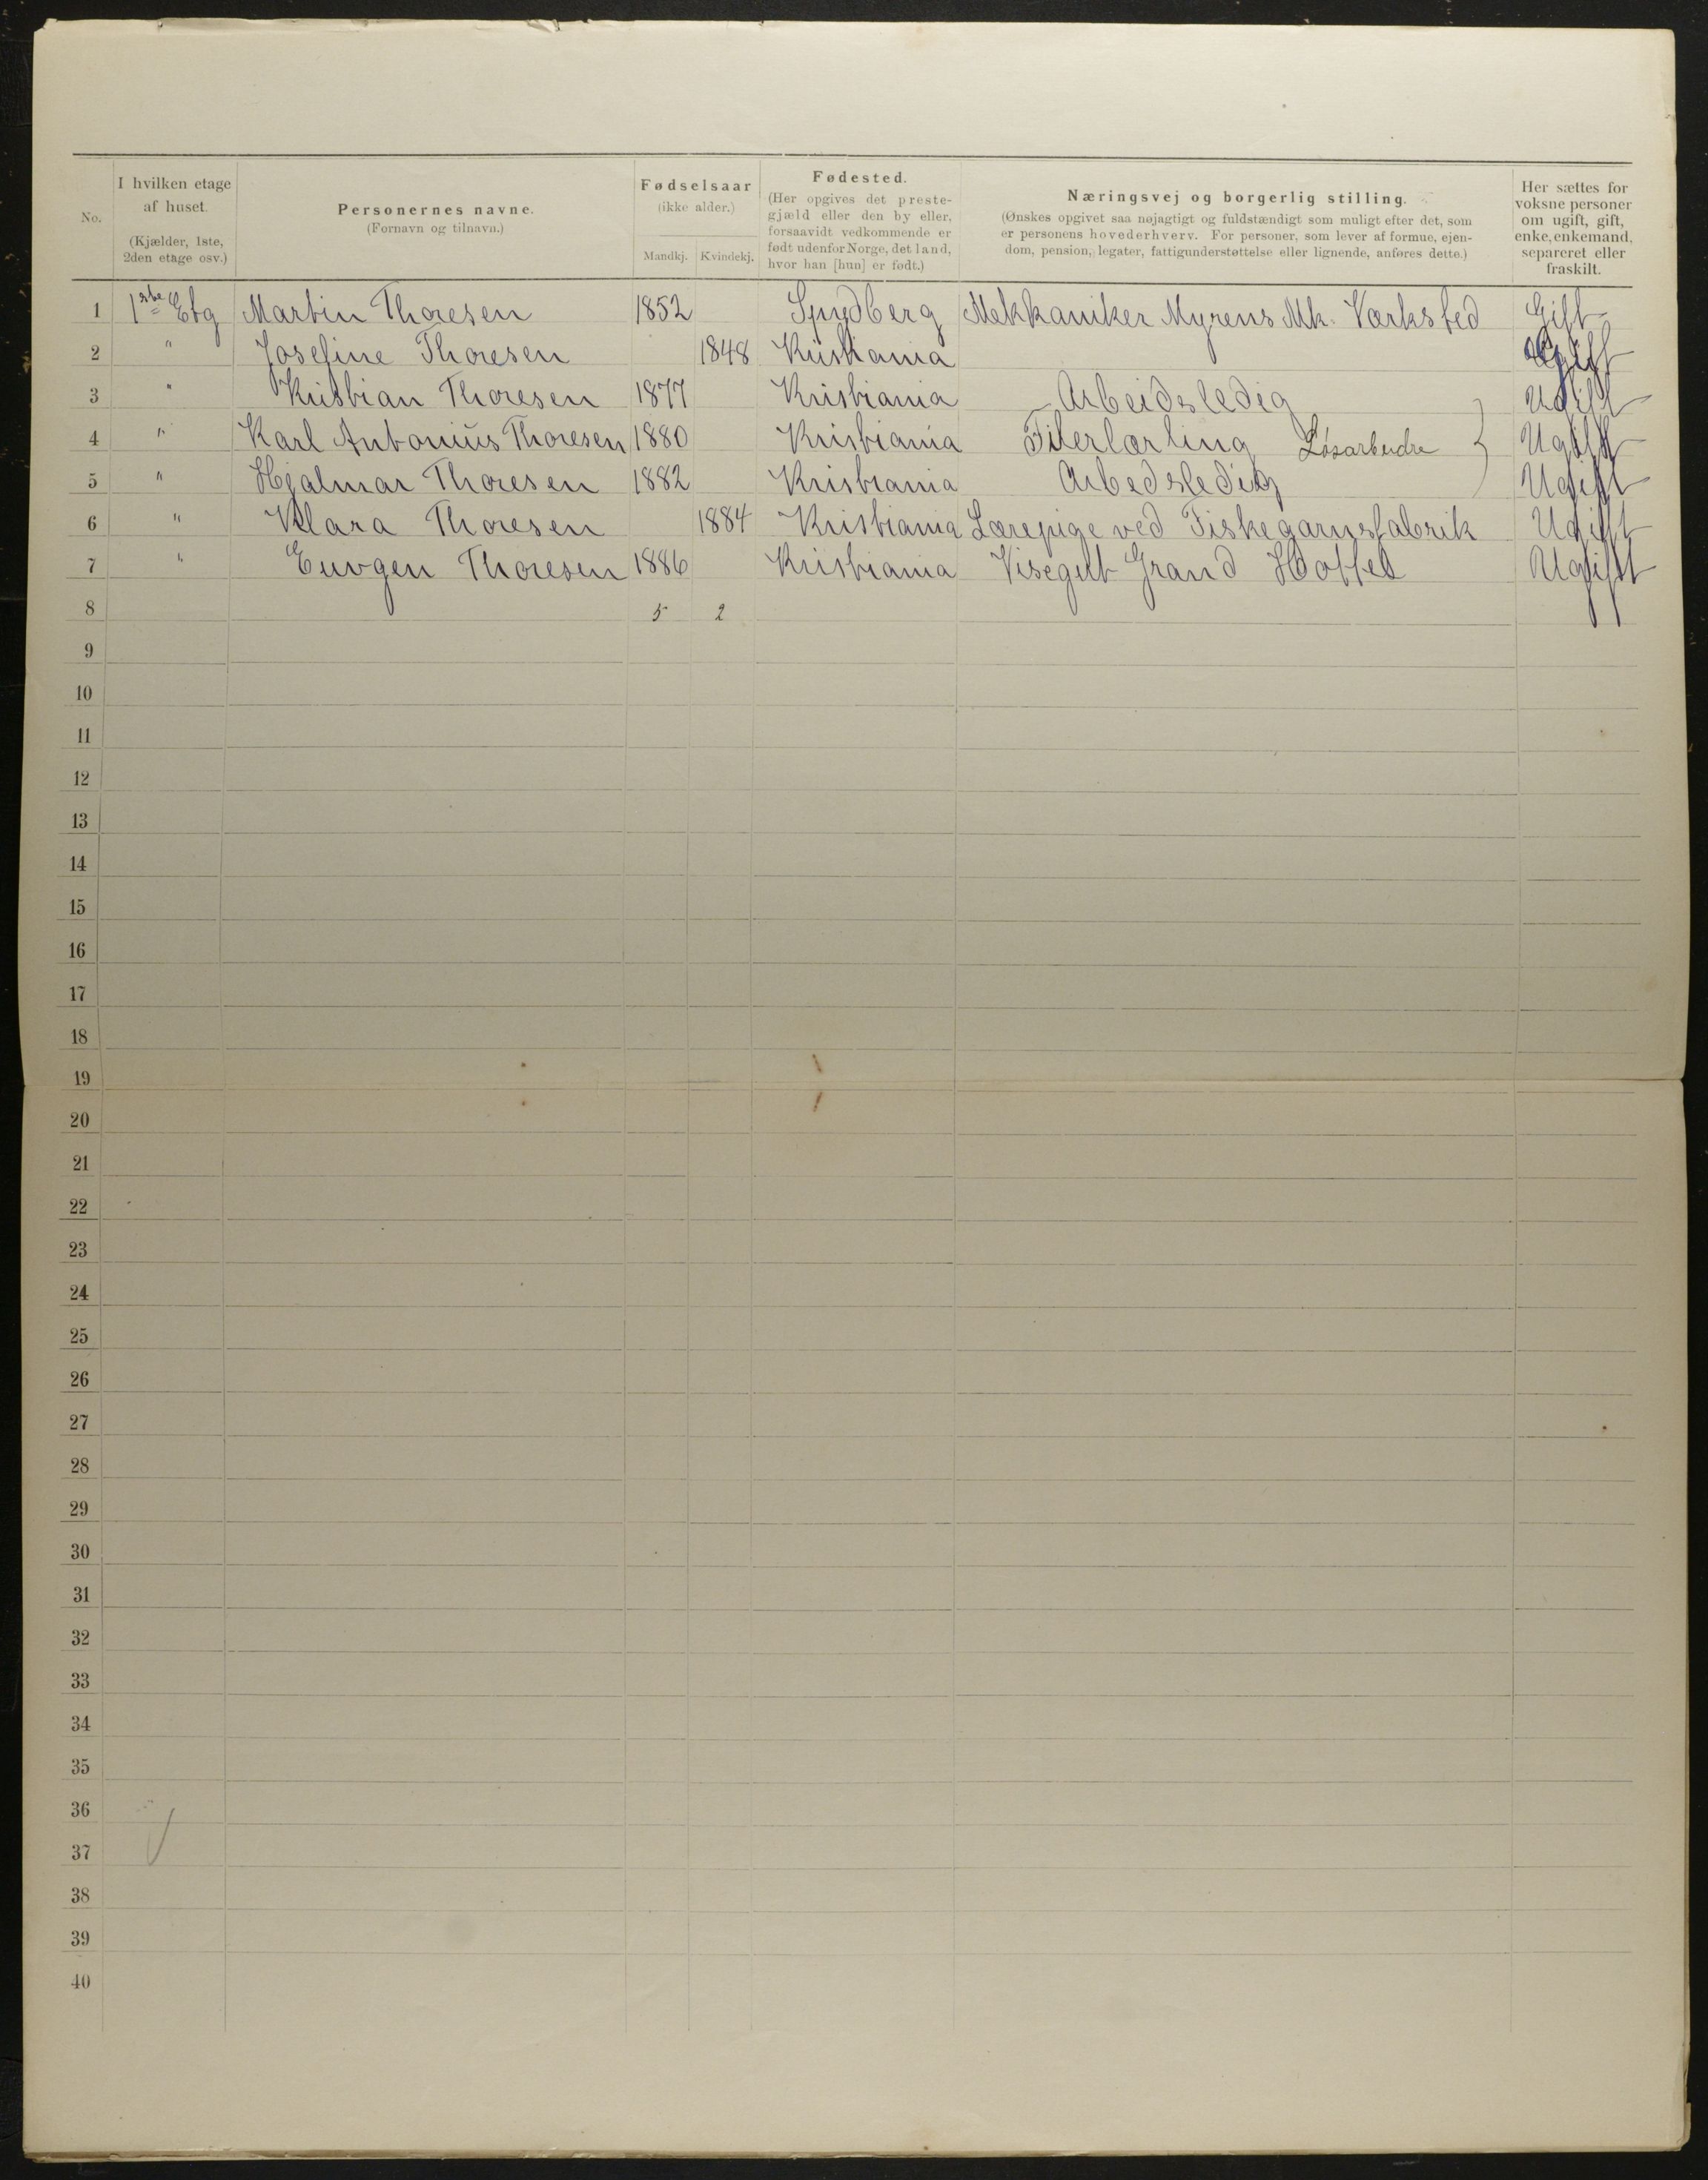 No.
I hvilken etage af huset. (Kjælder, 1ste, 2den etage osv.)
Personernes navne. (Fornavn og tilnavn.)
Fødselsaar (ikke alder.) Mandkj. Kvindekj.
Fødested. (Her opgives det prestegjæld eller den by eller, forsaavidt vedkommende er født udenfor Norge, det land, hvor han [hun] er født.)
Næringsvej og borgerlig stilling. (Ønskes opgivet saa nøjagtigt og fuldstændigt som muligt efter det, som er personens hovederhverv. For personer, som lever af formue, ejendom, pension, legater, fattigunderstøttelse eller lignende, anføres dette.)
Her sættes for voksne personer om ugift, gift, enke, enkemand, separeret eller fraskilt.
1 1ste Etg Martin Thoresen 1852 Spydberg Mekkaniker Myrens Mk. Værksted Gift
2 " Josefine Thoresen 1848 Kristiania Gift
3 " Kristian Thoresen 1877 Kristiania Arbeidsledig Ugift
4 " Karl Antonius Thoresen 1880 Kristiania Filerlærling Løsarbeidre } Ugift
5 " Hjalmar Thoresen 1882 Kristiania Arbedsledig Ugift
6 " Klara Thoresen 1884 Kristiania Lærepige ved Fiskegarnsfabrik Ugift
7 " Euvgen Thoresen 1886 Kristiania Visegut Grand Hottel Ugift
8 5 2
9
10
11
12
13
14
15
16
17
18
19
20
21
22
23
24
25
26
27
28
29
30
31
32
33
34
35
36
37
38
39
40